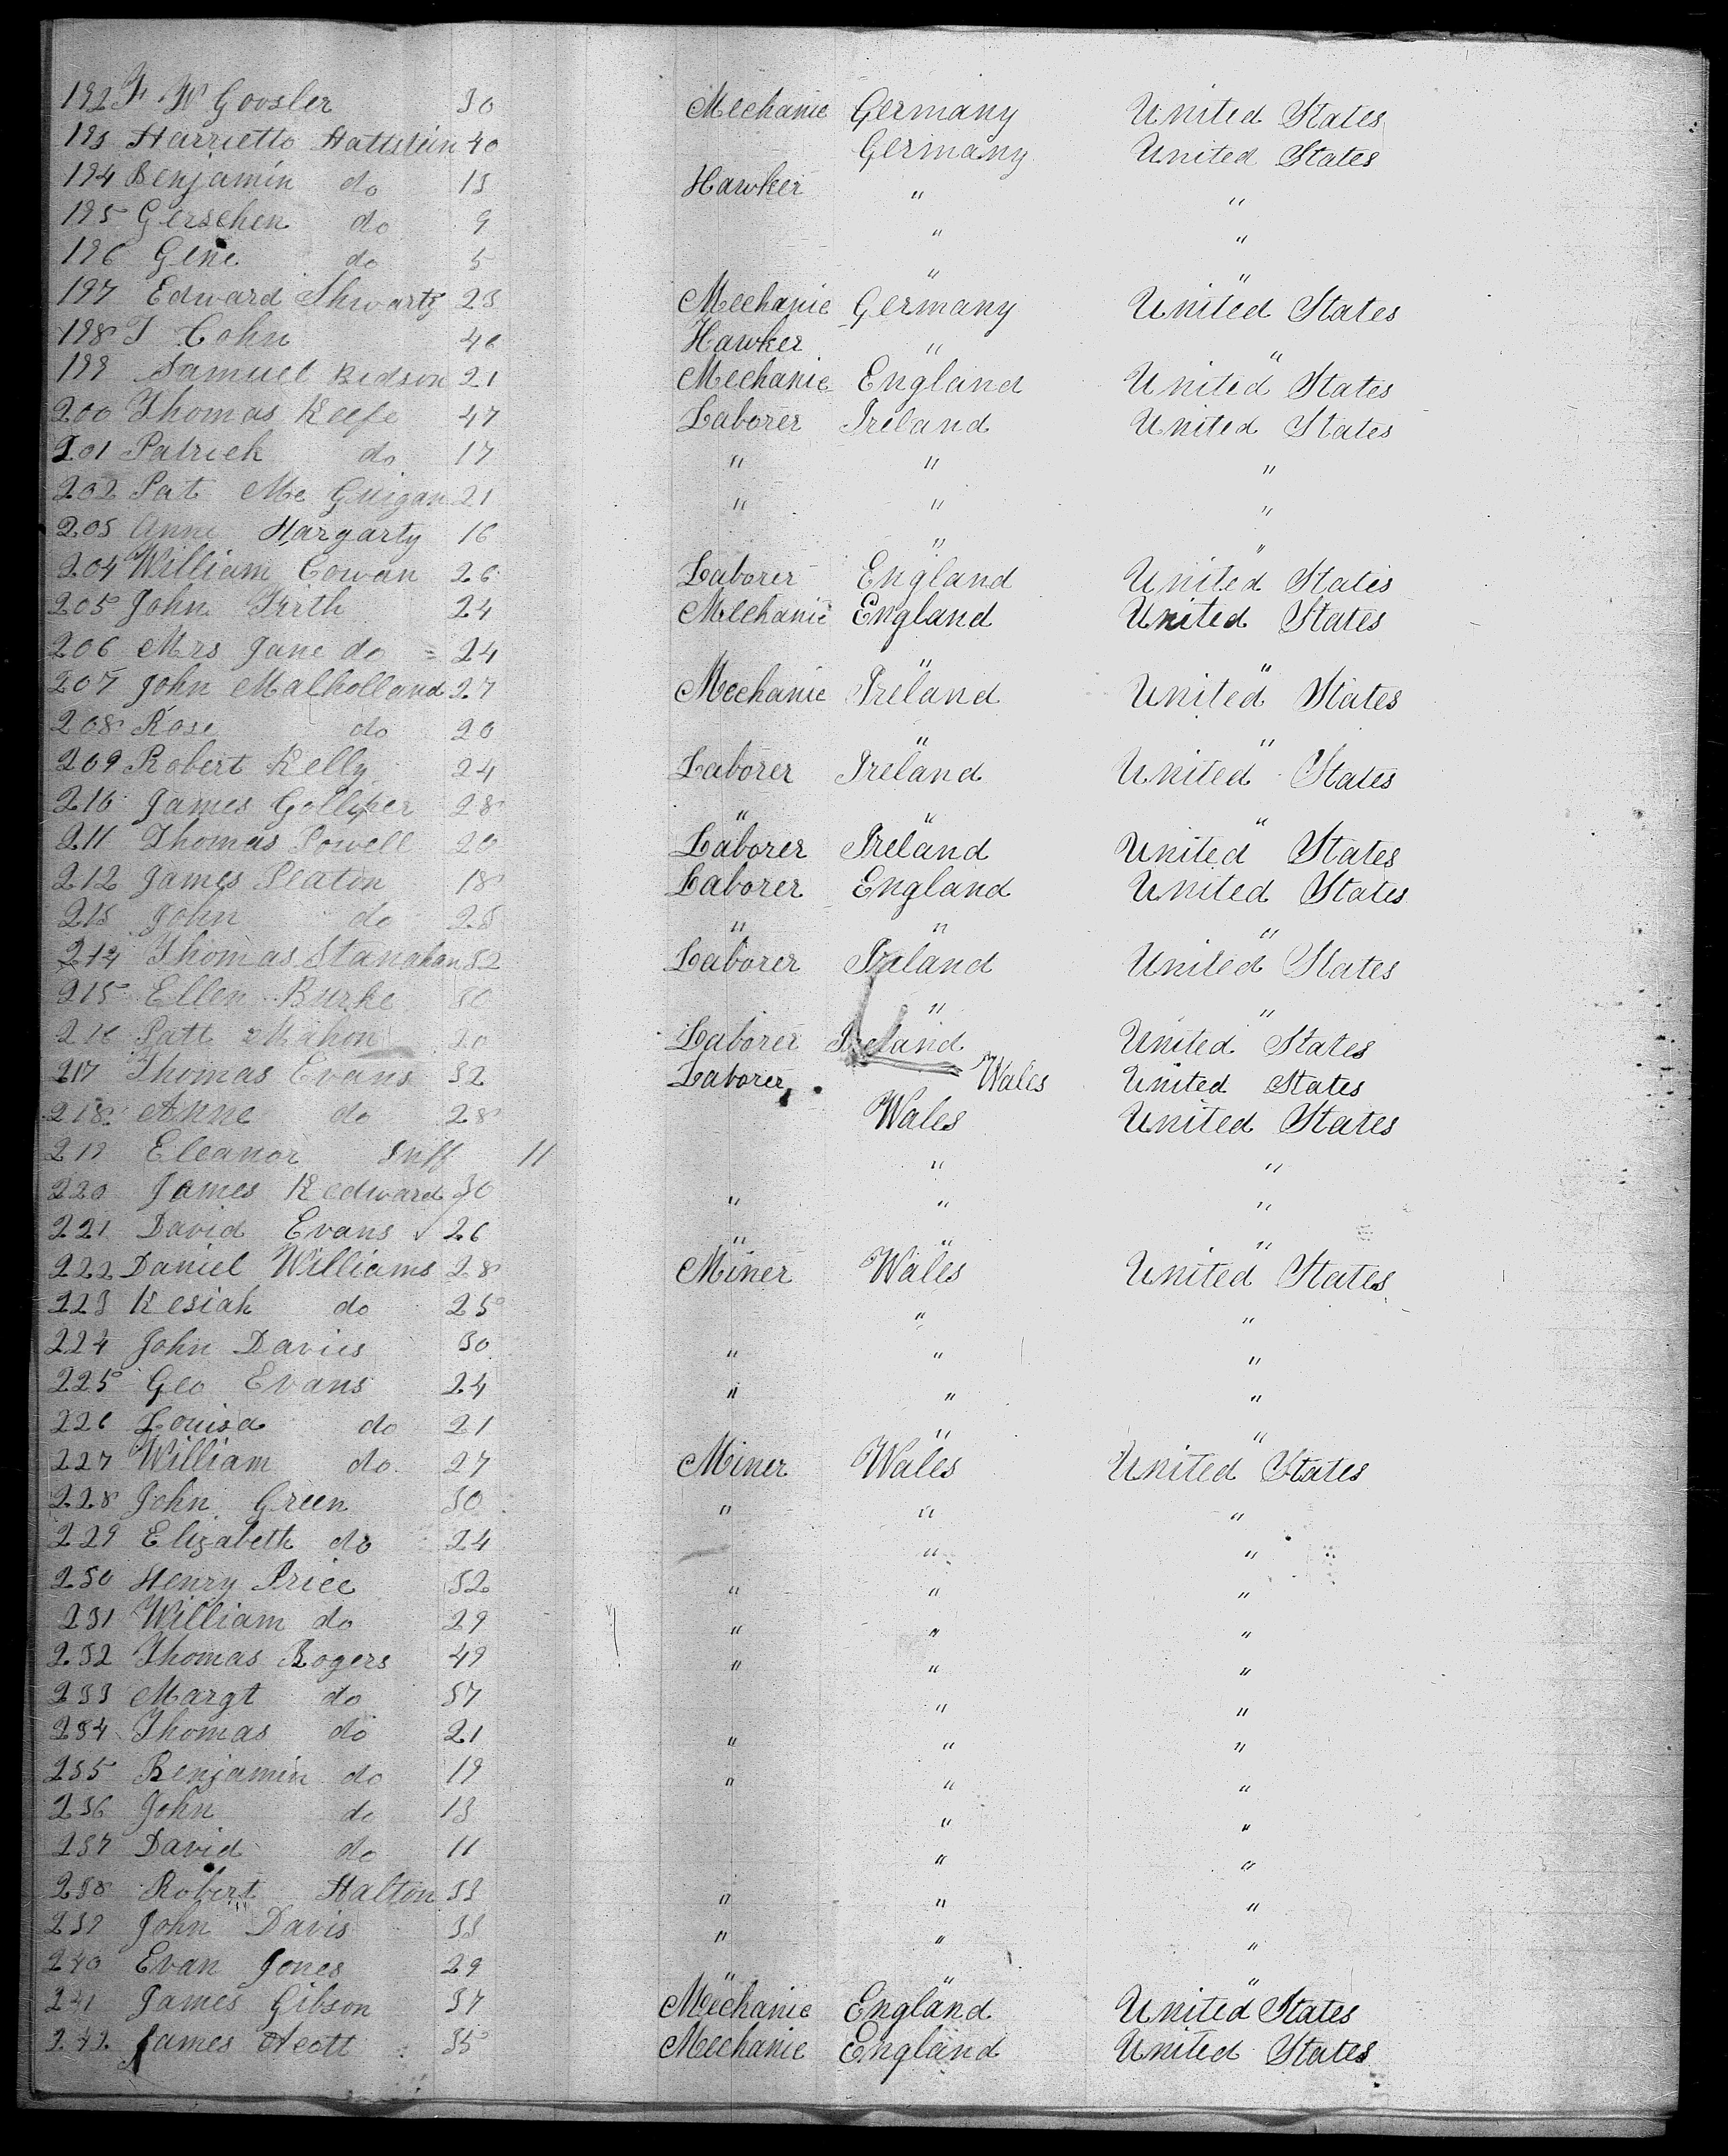 192 F. W Goosler 30 Mechanic Germany United States
193 Harrietto Hattstein 40 Germany United States
194 Benjamin do 13 Hawker " "
195 Gerschen do 9 " "
196 Gene do 5 " "
197 Edward Shwartz 23 Mechanic Germany United States
198 T Cohn 40 Hawker " "
199 Samuel Kidson 21 Mechanic England United States
200 Thomas Keefe 47 Laborer Ireland United States
201 Patrick do 17 " " "
202 Pat Mc Guigan 21 " " "
203 Anne Hargarty 16 " "
204 William Cowan 26 Laborer England United States
205 John Firth 24 Mechanic England United States
206 Mrs Jane do = 24 " "
207 John Malholland 27 Mechanic Ireland United States
208 Rose do 20 " "
209 Robert Kelly 24 Laborer Ireland United States
210 James Golliher 28 " " "
211 Thomas Powell 20 Laborer Ireland United States
212 James Seaton 18 Laborer England United States
213 John do 23 " " "
214 Thomas Stanahan 32 Laborer Ireland United States
215 Ellen Burke 30 " "
216 Patt Mahon 20 Laborer Ireland United States
217 Thomas Evans 32 Laborer Wales United States
218 Anne do 28 Wales United States
219 Eleanor Inff 11 " "
220 James Kedward 30 " " "
221 David Evans 26 " " "
222 Daniel Williams 28 Miner Wales United States
223 Kesiah do 25 " "
224 John Davies 30 " " "
225 Geo Evans 24 " " "
226 Louisa do 21 " "
227 William do 27 Miner Wales United States
228 John Green 30 " " "
229 Elizabeth do 24 " "
230 Henry Price 32 " " "
231 William do 29 " " "
232 Thomas Rogers 49 " " "
233 Margt do 37 " "
234 Thomas do 21 " " "
235 Benjamin do 19 " " "
236 John do 13 " "
237 David do 11 " "
238 Robert Halton 33 " " "
239 John Davis 33 " " "
240 Evan Jones 29 " " "
241 James Gibson 37 Mechanic England United States
242 James Scott 35 Mechanic England United States